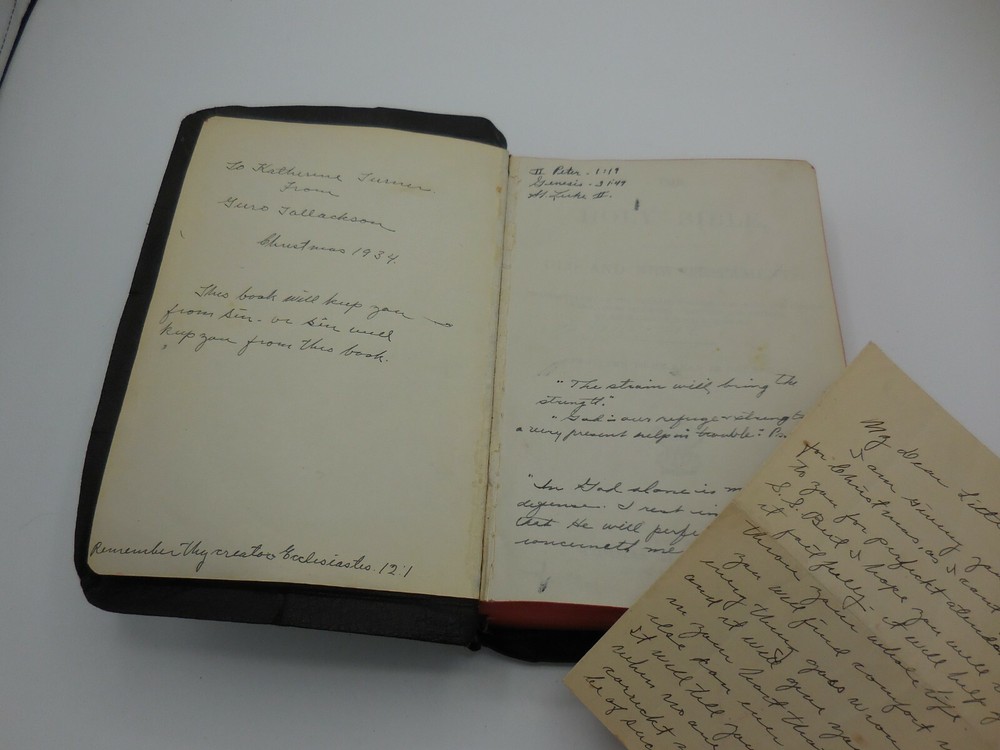 To Katherine Turner
From
Guro Tallackson
Christmas 1934.
This book will keep you
from sin - or sin will
keep you from this book.
Remember thy creator Ecclesiastes. 12:1
II Peter - 1:19
Genesis - 31:49
St. Luke II.
"The strain will bring the
strength."
"God is our refuge & strength
a very present help in trouble" - Ps.
"In God alone is m
defense. I rest in
that He will perfe
concerneth me
My dear
I am giving you
for Christmas, as I
to you for perfect attendance
S.S. But I hope you will
it faithfully - it will help
thru your whole life
you will find comfort
every thing goes wrong
and it will give you
in your heart than
else can ever
It will tell you
when no one
correct
be of